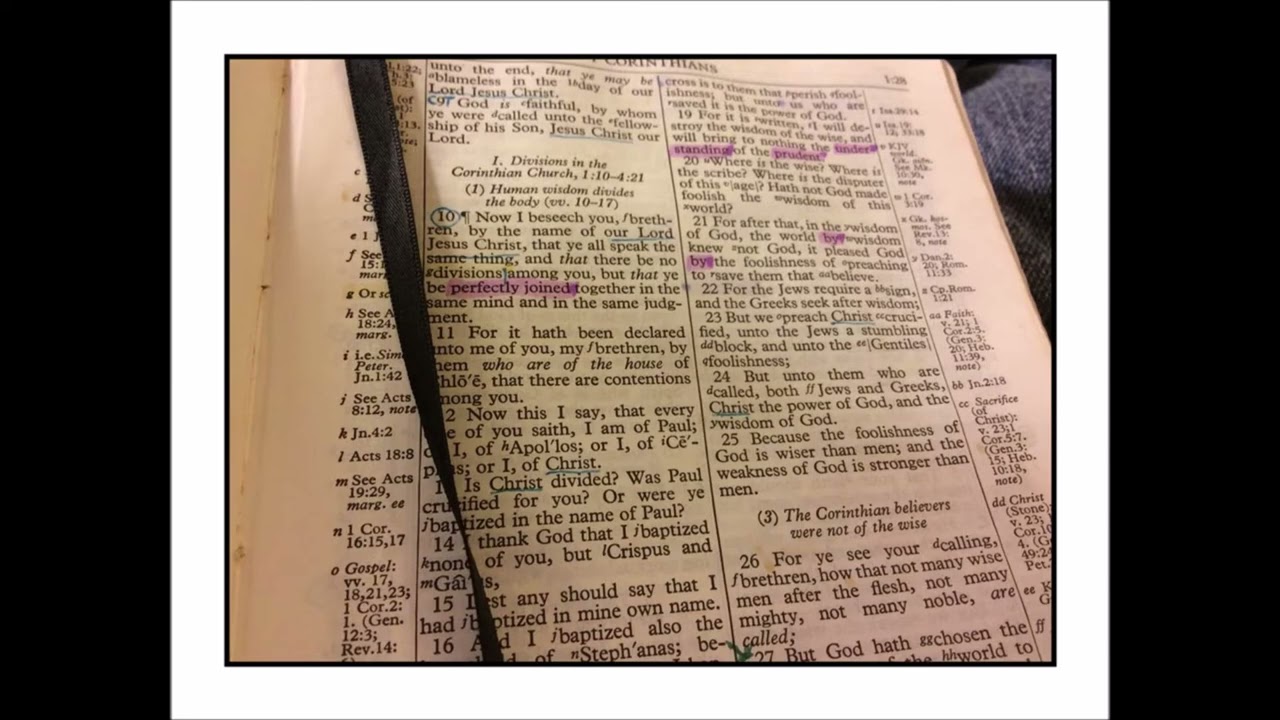 CORINTHIANS
1:28
unto the end, that ye may be
blameless in the day of our
Lord Jesus Christ.
God is faithful, by whom
ye were called unto the fellow-
ship of his Son, Jesus Christ our
Lord.
I. Divisions in the
Corinthian Church, 1:10–4:21
(1) Human wisdom divides
the body (vv. 10–17)
10 ¶ Now I beseech you, f breth-
ren, by the name of our Lord
Jesus Christ, that ye all speak the
same thing, and that there be no
g divisions among you, but that ye
be perfectly joined together in the
same mind and in the same judg-
ment.
11 For it hath been declared
unto me of you, my f brethren, by
hem who are of the house of
hlō′ē, that there are contentions
mong you.
2 Now this I say, that every
e of you saith, I am of Paul;
I, of h Apol′los; or I, of i Cē′-
as; or I, of Christ.
Is Christ divided? Was Paul
crucified for you? Or were ye
j baptized in the name of Paul?
14 I thank God that I j baptized
k none of you, but l Crispus and
m Gāi us,
15 Lest any should say that I
had j baptized in mine own name.
16 And I j baptized also the
of n Steph′anas; be-
cross is to them that perish fool-
ishness; but unto us who are
saved it is the power of God.
19 For it is written, I will de-
stroy the wisdom of the wise, and
will bring to nothing the under-
standing of the prudent.
20 Where is the wise? Where is
the scribe? Where is the disputer
of this age? Hath not God made
foolish the wisdom of this
world?
21 For after that, in the wisdom
of God, the world by wisdom
knew not God, it pleased God
by the foolishness of preaching
to save them that aa believe.
22 For the Jews require a bb sign,
and the Greeks seek after wisdom;
23 But we preach Christ cc cruci-
fied, unto the Jews a stumbling
dd block, and unto the ee Gentiles
q foolishness;
24 But unto them who are
d called, both ff Jews and Greeks,
Christ the power of God, and the
y wisdom of God.
25 Because the foolishness of
God is wiser than men; and the
weakness of God is stronger than
men.
(3) The Corinthian believers
were not of the wise
26 For ye see your d calling,
f brethren, how that not many wise
men after the flesh, not many
mighty, not many noble, are
called;
27 But God hath gg chosen the
the hh world to
c
d S
e 1 J
f See
15:1
mar
g Or
h See A
18:24,
marg.
i i.e. Sim
Peter.
Jn.1:42
j See Acts
8:12, note
k Jn.4:2
l Acts 18:8
m See Acts
19:29,
marg. ee
n 1 Cor.
16:15,17
o Gospel:
vv. 17,
18,21,23;
1 Cor.2:
1. (Gen.
12:3;
Rev.14:
r Isa.29:14
KJV
world.
See Mk.
10:30,
note
w 1 Cor.
3:19
Rev.13:
8, note
y Dan.2:
20; Rom.
11:33
z Cp.Rom.
1:21
aa Faith:
v. 21; 1
Cor.2:5.
(Gen.3:
20; Heb.
11:39,
note)
bb Jn.2:18
cc Sacrifice
(of
Christ):
v. 23;1
Cor.5:7.
(Gen.3:
15; Heb.
10:18,
note)
dd Christ
(Stone):
v. 23;
Cor.10
4. (G
49:24
Pet.
ee K
G
ff